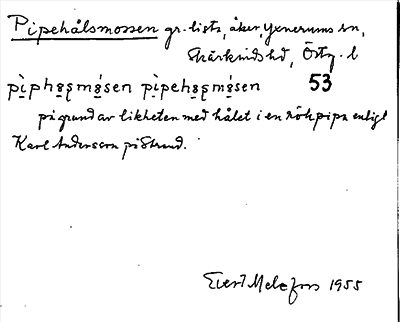 Pipehålsmossen gr.-lista, åker, Yxnerums sn,
Skärkinds hd, Östg. l
pìpho̤ʂmó̤sen pìpeho̤ʂmó̤sen 53
på grund av likheten med hålet i en rökpipa enligt
Karl Andersson på Strand.
Evert Melefors 1955